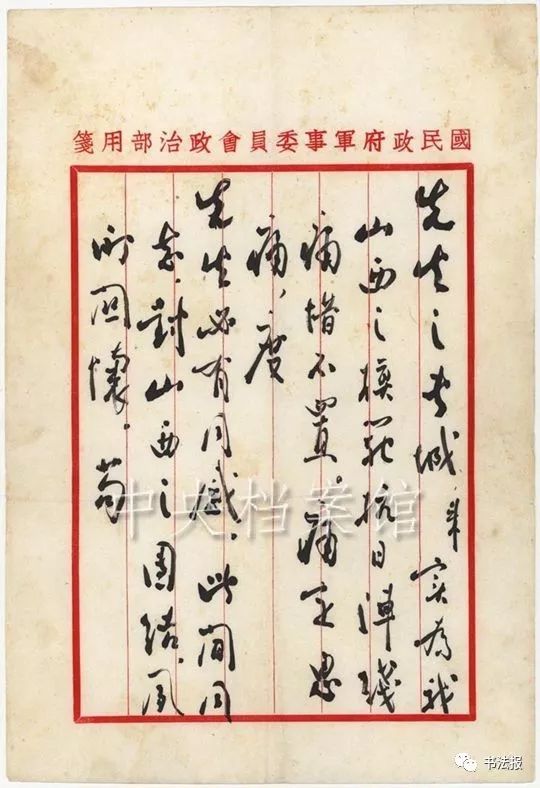 國民政府軍事委員會政治部用箋
先生之城,實為我
山西之模範抗日陣綫
痛惜不置。痛定思
痛,度
先生必有同感。此間同
志,對山西之團結,夙
所關懷。苟
中央档案馆
书法报